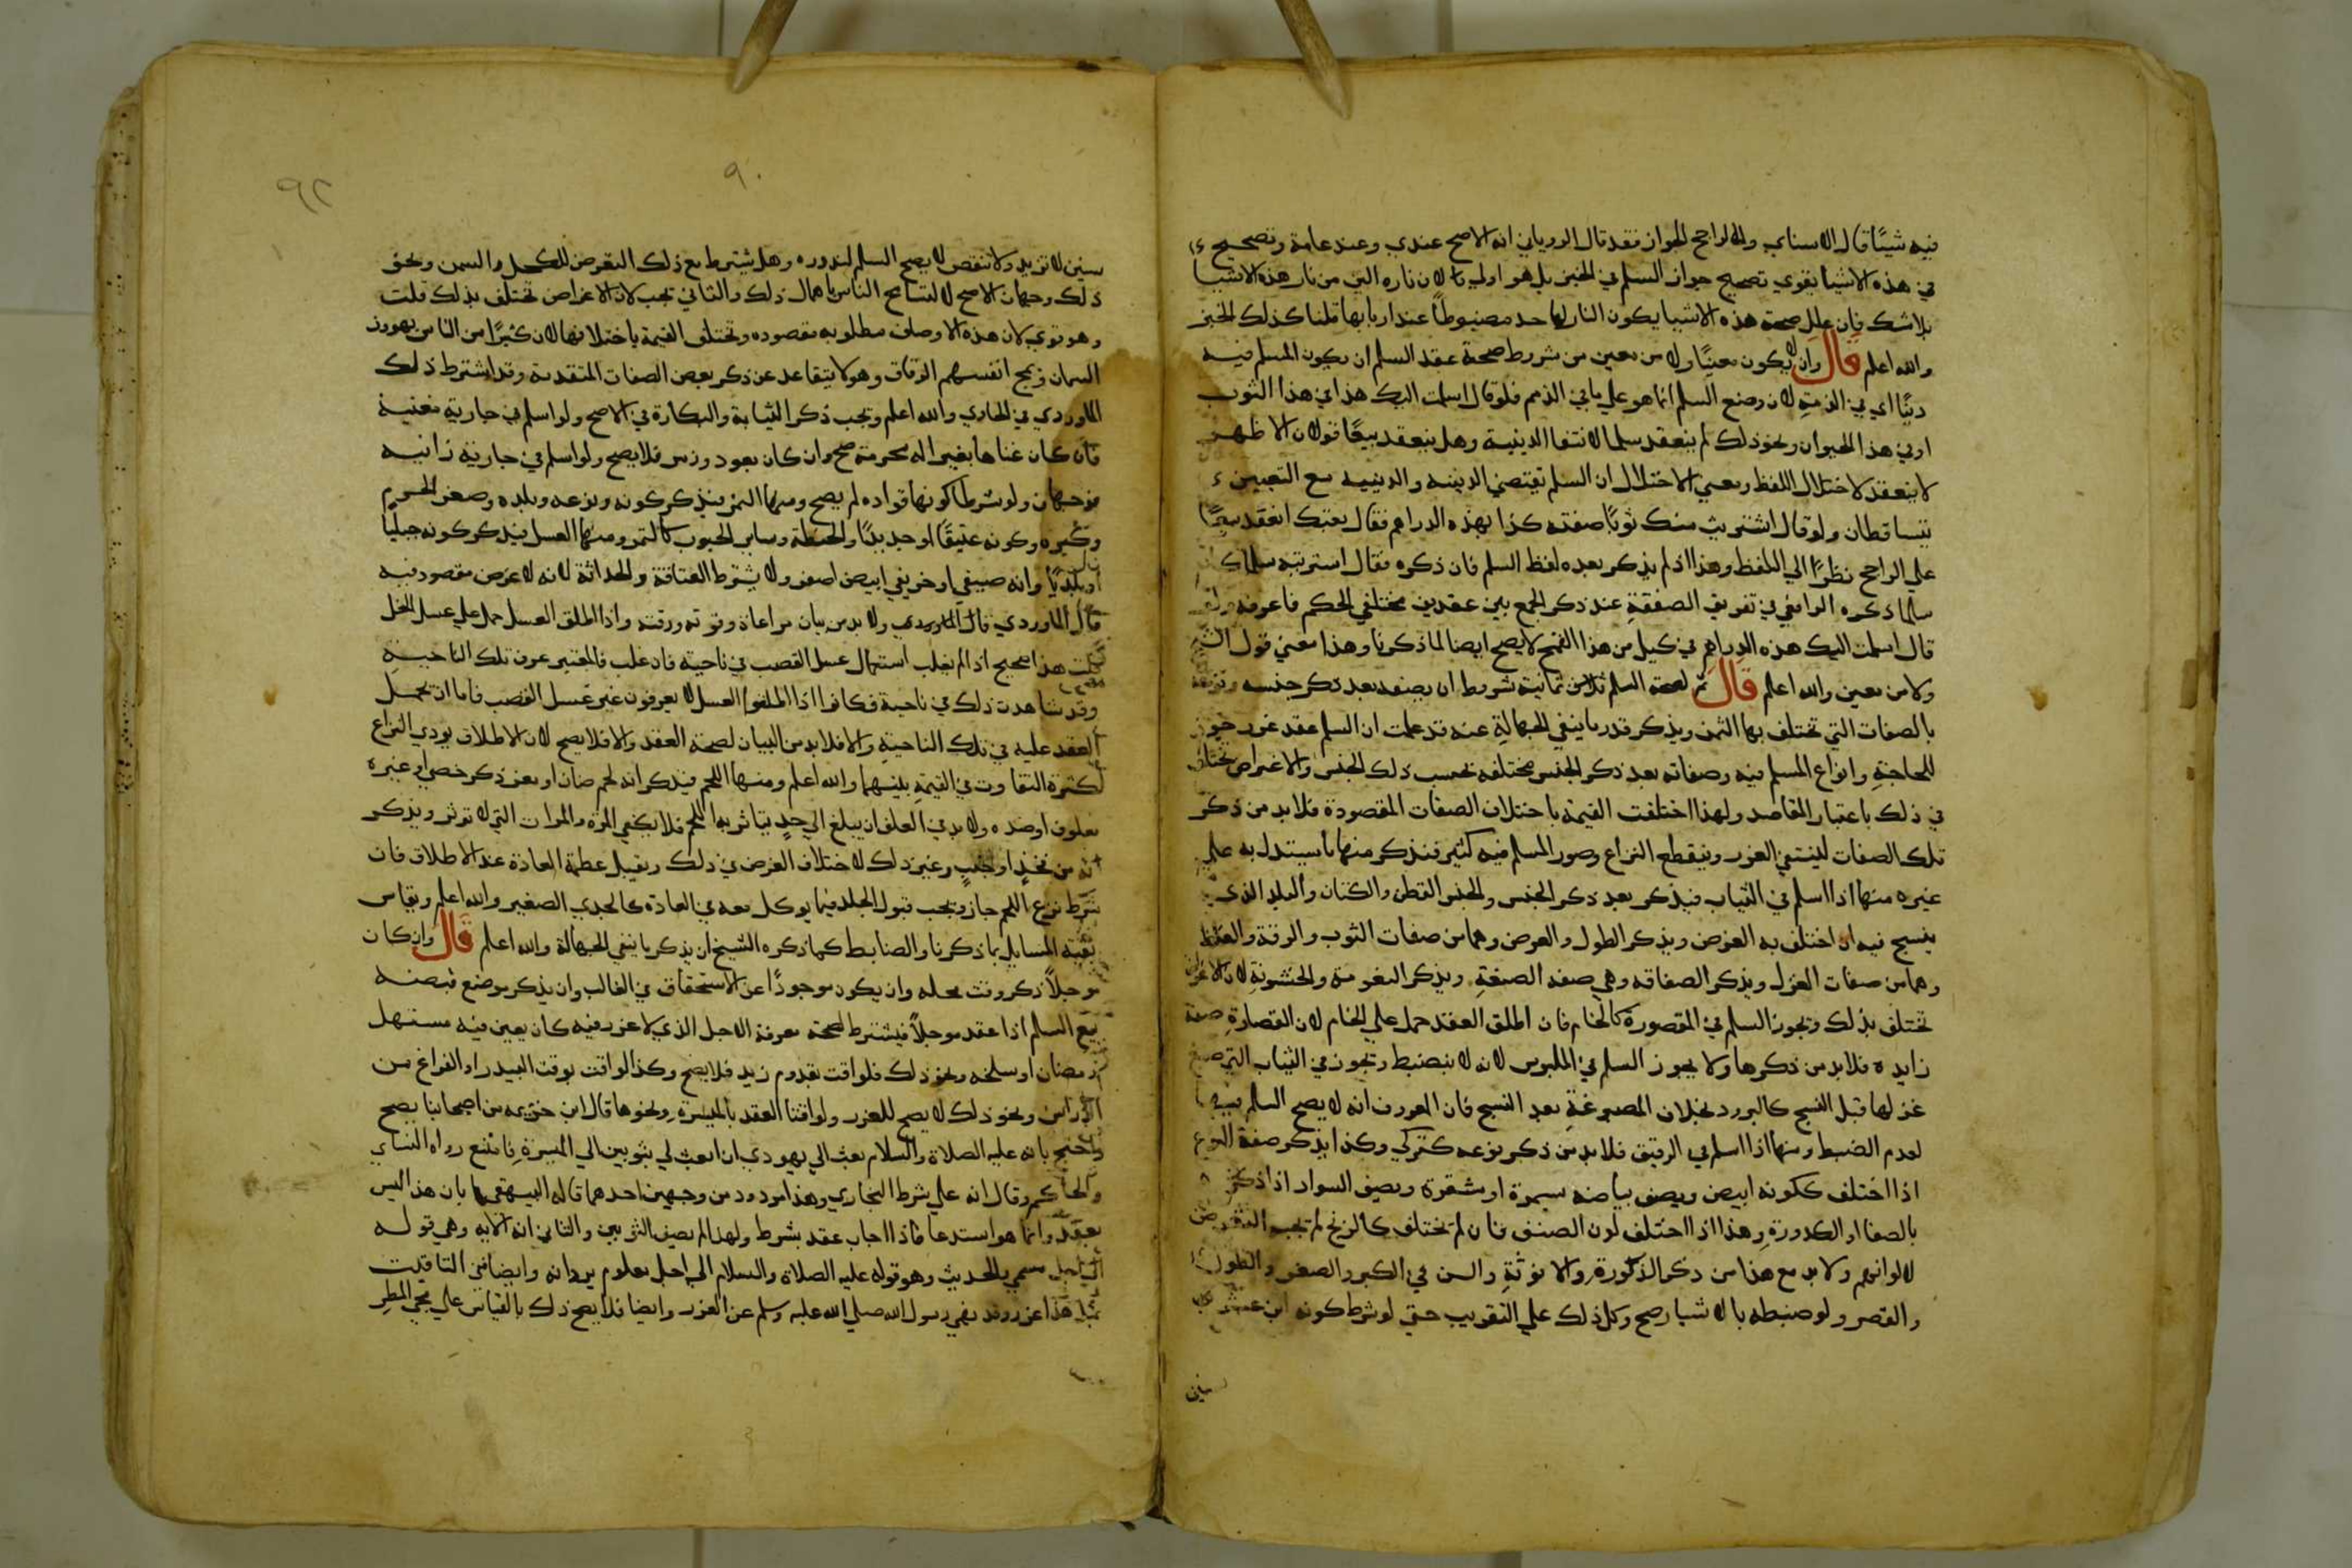 فيه شيئا قال الاسناي والراجح الجواز فقد قال الروياني انه الاصح عندي وعند عامة وتصحيح
في هذه الاشيا يقوي تصحيح جواز السلم في الخبز بل هو اولي لان ناره الين من نار هذه الاشيا
بلا شك فان علل صحة هذه الاشيا بكون النار لها حد مضبوطا عند اربابها قلنا كذلك الخبز
والله اعلم قال وان لا يكون معينا ولا من معين من شروط صحة عقد السلم ان يكون المسلم فيه
دينا اي في الذمة لان وضع السلم انما هو علي ما في الذمم فلو قال اسلمت اليك هذا في هذا الثوب
او في هذا الحيوان ونحو ذلك لم ينعقد سلما لانتفا الدينية وهل ينعقد بيعا قولان الاظهر
لا ينعقد لاختلال اللفظ ومعني الاختلال ان السلم يقتضي الدينية والدينية مع التعيين
يتساقطان ولو قال اشتريت منك ثوبا صفته كذا بهذه الدراهم فقال بعتك انعقد بيعا
علي الراجح نظرا الي اللفظ وهذا اذا لم يذكر بعده لفظ السلم فان ذكره فقال اشتريته سلما كان
سلما ذكره الرافعي في تفريق الصفقة عند ذكر الجمع بين عقدين مختلفي الحكم فاعرفه ولو
قال اسلمت اليك هذه الدراهم في كيل من هذا القمح لا يصح ايضا لما ذكرنا وهذا معني قول الشيخ
ولا من معين والله اعلم قال ثم لصحة السلم ثمانية شروط ان يصفه بعد ذكر جنسه ونوعه
بالصفات التي تختلف بها الثمن ويذكر قدره ما ينفي الجهالة عنه قد علمت ان السلم عقد غرر جوز
للحاجة وانواع المسلم فيه وصفاته بعد ذكر الجنس مختلفه بحسب ذلك الجنس والاغراض تختلف
في ذلك باعتبار المقاصد ولهذا اختلفت القيمة باختلاف الصفات المقصودة فلا بد من ذكر
تلك الصفات لينتفي الغرر وينقطع النزاع وصور المسلم فيه كثير فنذكر منها ما يستدل به علي
غيره منها اذا اسلم في الثياب فيذكر بعد ذكر الجنس والجنس القطن والكتان والبلد الذي
ينسج فيه ان اختلف به الغرض ويذكر الطول والعرض وهما من صفات الثوب والرقة والغلظ
وهما من صفات الغزل ويذكر الصفاقه وهي صفه الصنعة ويذكر النعومة والخشونة لان الاغراض
تختلف بذلك ويجوز السلم في المقصورة كالخام فان اطلق العقد حمل علي الخام لان القصارة صفة
زايدة فلا بد من ذكرها ولا يجوز السلم في الملبوس لانه لا ينضبط ويجوز في الثياب التي صبغ
غزلها قبل النسج كالبرود بخلاف المصبوغة بعد النسج فان المعروف انه لا يصح السلم فيها
لعدم الضبط ومنها اذا اسلم في الرقيق فلا بد من ذكر نوعه كتركي وكذا يذكر صفة النوع
اذا اختلف ككونه ابيض ويصف بياضه بسمرة او شقرة ويصف السواد اذا ذكره
بالصفا او الكدورة وهذا اذا اختلف لون الصنف فان لم يختلف كالزنج لم يجب التعرض
لالوانهم ولا بد مع هذا من ذكر الذكورة والانوثة والسن في الكبر والصغر والطول
والقصر ولو ضبطه بالاشبار صح وكل ذلك علي التقريب حتي لو شرط كونه ابن عشر
سنين
٩٠
٩٢
سنين لا تزيد ولا تنقص لا يصح السلم لندوره وهل يشترط مع ذلك التعرض للكحل والسمن ونحو
ذلك وجهان الاصح لا لتسامح الناس باهمال ذلك والثاني يجب لان الاغراض تختلف بذلك قلت
وهو قوي لان هذه الاوصاف مطلوبه مقصوده وتختلف القيمة باختلافها لان كثيرا من الناس يهوون
السمان وتمج انفسهم الرقاق وهو لا يتقاعد عن ذكر بعض الصفات المتقدمة وقد اشترط ذلك
الماوردي في الحاوي والله اعلم ويجب ذكر الثيابة والبكارة في الاصح ولو اسلم في جارية مغنية
فان كان غناها بغير اله محرمة صح وان كان بعود وزمر فلا يصح ولو اسلم في جارية زانيه
فوجهان ولو شرط كونها قواده لم يصح ومنها التمر فيذكر كونه ونوعه وبلده وصغر الجرم
وكبره وكونه عتيقا او جديدا والحنطة وساير الحبوب كالتمر ومنها العسل فيذكر كونه جبليا
او بلديا وانه صيفي او خريفي ابيض اصفر ولا يشترط العتاقة والحداثة لانه لا غرض مقصود فيه
قال الماوردي قال الماوردي ولا بد من بيان مراعاة وقوته ورقته واذا اطلق العسل حمل علي عسل النحل
قلت هذا صحيح اذا لم يغلب استعمال عسل القصب في ناحية فان غلب فالمعتبر عرف تلك الناحية
وقد شاهدت ذلك في ناحية فكانوا اذا اطلقوا العسل لا يعرفون غير عسل القصب فاما ان يحمل
العقد عليه في تلك الناحية والا فلا بد من البيان لصحة العقد والا فلا يصح لان الاطلاق يودي النزاع
لكثرة التفاوت في القيمة بينهما والله اعلم ومنها اللحم فيذكر انه لحم ضان او معز ذكر خصي او غيره
معلوف او ضده ولا بد في العلف ان يبلغ الي حد يتاثر به اللحم فلا يكفي المرة والمرات التي لا توثر ويذكر
انه من فخذ او جنب وغير ذلك لاختلاف الغرض في ذلك ويقبل عظمة العادة عند الاطلاق فان
شرط نزع اللحم جاز ويجب قبول الجلد فيما يوكل معه في العادة كالجدي الصغير والله اعلم ويقاس
بقية المسايل بما ذكرنا والضابط كما ذكره الشيخ ان يذكر ما ينفي الجهالة والله اعلم قال وان كان
موجلا ذكر وقت محله وان يكون موجودا عن الاستحقاق في الغالب وان يذكر موضع قبضه
بيع السلم اذا عقد موجلا فيشترط لصحته معرفة الاجل الذي لا غرر فيه كان يعين فيه مستهل
رمضان او سلخه ونحو ذلك فلو اقت بقدوم زيد فلا يصح وكذا لو اقت بوقت البيدر او الفراغ من
الدراس ونحو ذلك لا يصح للغرر ولو اقتا العقد بالميسرة ونحوها قال ابن خزيمه من اصحابنا يصح
واحتج بانه عليه الصلاة والسلام بعث الي يهودي ان ابعث لي بثوبين الي الميسرة فامتنع رواه النساي
والحاكم وقال انه علي شرط البخاري وهذا مردود من وجهين احدهما قاله البيهقي بان هذا ليس
بعقد وانما هو استدعا فاذا اجاب عقد بشرط ولهذا لم يصف الثوبين والثاني انه الايه وهي قوله
الي اجل مسمي والحديث وهو قوله عليه الصلاة والسلام الي اجل معلوم يردانه وايضا فني التاقيت
بمثل هذا غرر وقد نهي رسول الله صلي الله عليه وسلم عن الغرر وايضا فلا يصح ذلك بالقياس علي مجي المطر